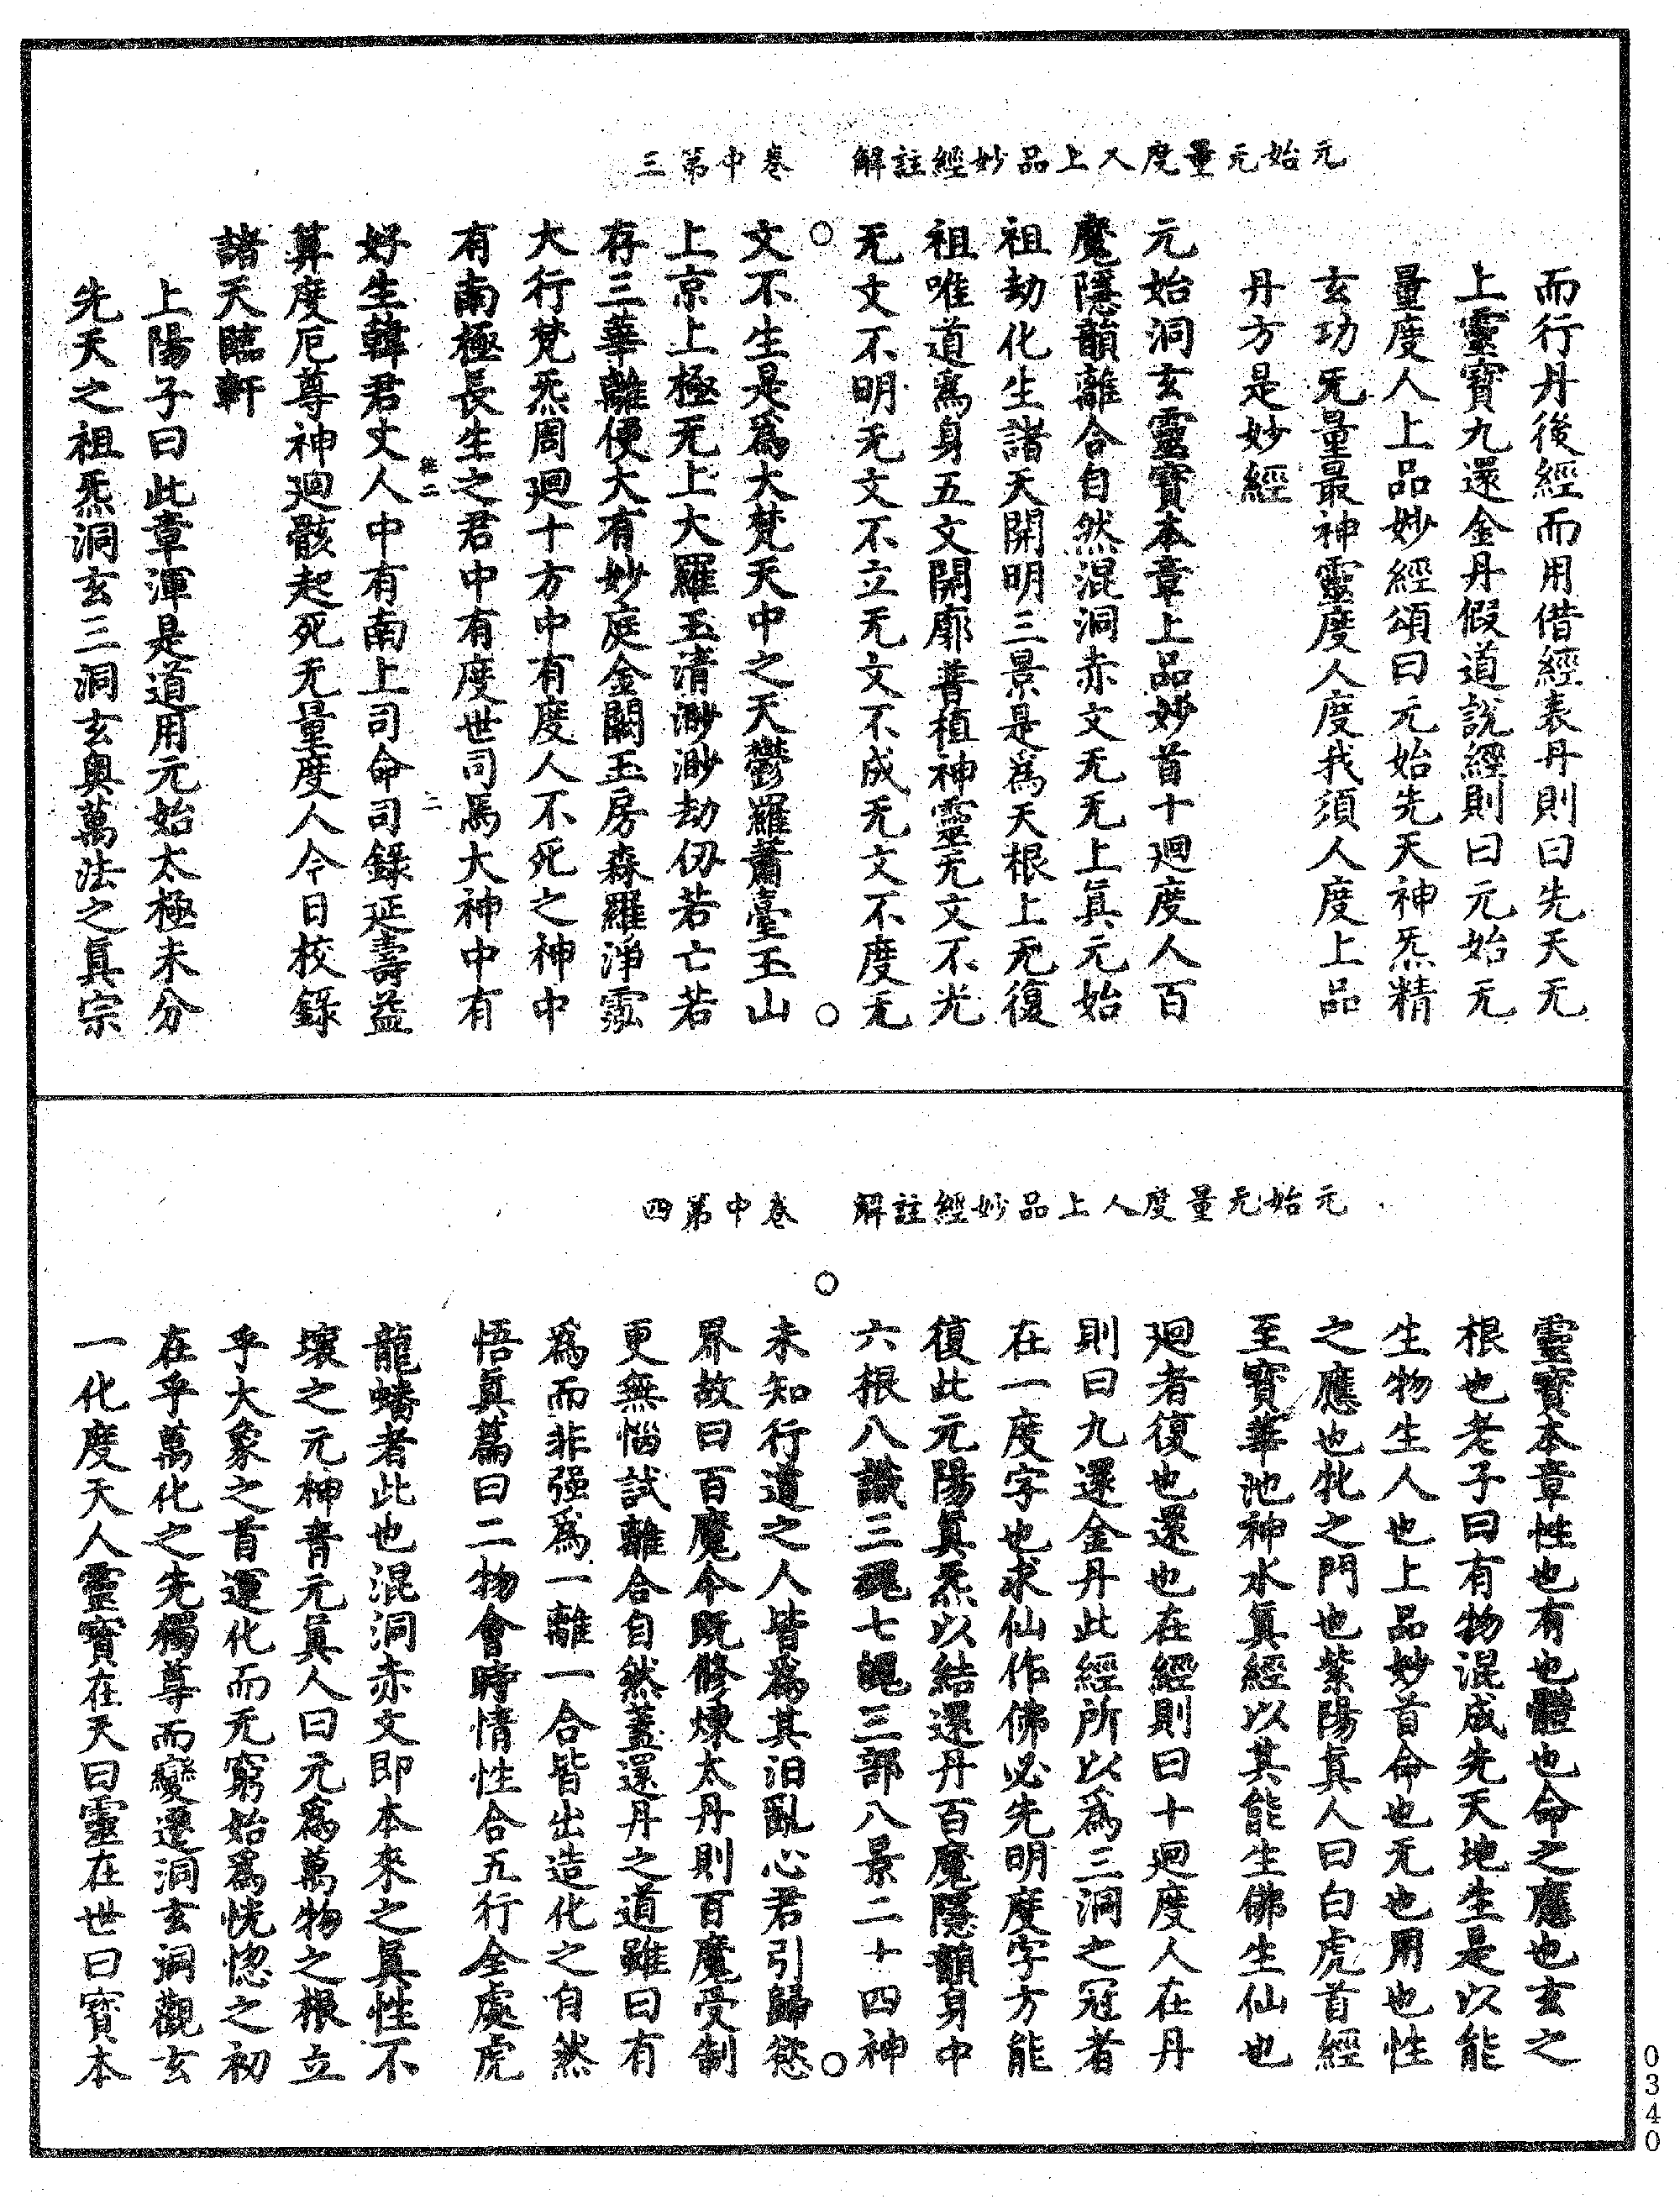 元始无量度人上品妙經註解　卷中第三
而行丹後經而用借經表丹則曰先天无
上靈寶九還金丹假道說經則曰元始无
量度人上品妙經頌曰元始先天神炁精
玄功无量最神靈度人度我須人度上品
丹方是妙經
元始洞玄靈寶本章上品妙首十迴度人百
魔隱韻離合自然混洞赤文无无上眞元始
祖劫化生諸天開明三景是爲天根上无復
祖唯道爲身五文開廓普植神靈无文不光
无文不明无文不立无文不成无文不度无
文不生是爲大梵天中之天鬱羅蕭臺玉山
上京上極无上大羅玉清渺渺劫仞若亡若
存三華離便大有妙庭金闕玉房森羅淨泓
大行梵炁周迴十方中有度人不死之神中
有南極長生之君中有度世司馬大神中有
好生韓君丈人中有南上司命司錄延壽益
算度厄尊神迴骸起死无量度人今日校錄
諸天臨軒
上陽子曰此章渾是道用元始太極未分
先天之祖炁洞玄三洞玄奥萬法之眞宗
元始无量度人上品妙經註解　卷中第四
靈寶本章性也有也體也命之應也玄之
根也老子曰有物混成先天地生是以能
生物生人也上品妙首命也无也用也性
之應也牝之門也紫陽眞人曰白虎首經
至寶華池神水眞經以其能生佛生仙也
迴者復也還也在經則曰十迴度人在丹
則曰九還金丹此經所以爲三洞之冠者
在一度字也求仙作佛必先明度字方能
復此元陽眞炁以結還丹百魔隱韻身中
六根八識三魂七魄三部八景二十四神
未知行道之人皆爲其汨亂心君引歸慾
界故曰百魔今既修煉太丹則百魔受制
更無惱試離合自然蓋還丹之道雖曰有
爲而非强爲一離一合皆出造化之自然
悟眞篇曰二物會時情性合五行全處虎
龍蟠者此也混洞赤文即本來之眞性不
壞之元神青元眞人曰元爲萬物之根立
乎大象之首運化而无窮始爲恍惚之初
在乎萬化之先獨尊而變遷洞玄洞觀玄
一化度天人靈寶在天曰靈在世曰寶本
0340